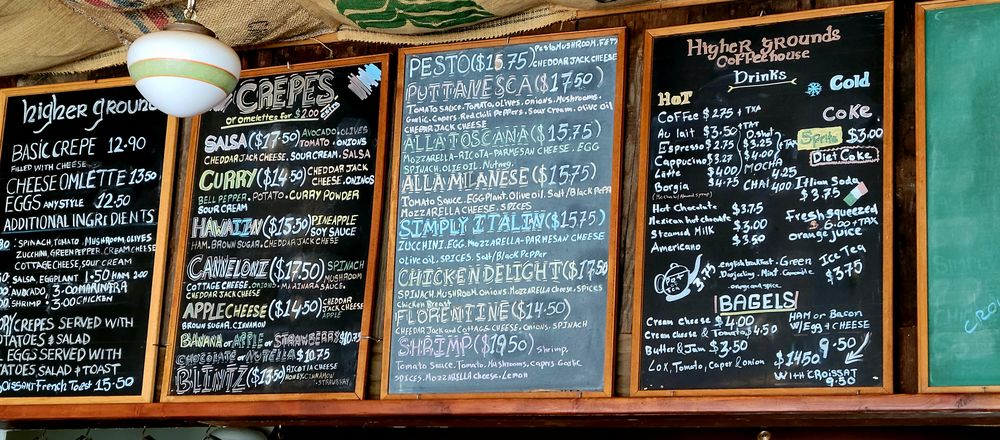 higher ground
BASIC CREPE 12.90
FILLED WITH CHEESE
CHEESE OMLETTE 13.50
EGGS ANY STYLE 12.50
ADDITIONAL INGRIDIENTS
SPINACH, TOMATO, MUSHROOM, OLIVES
ZUCHINNI, GREEN PEPPER, CREAM CHEESE
COTTAGE CHEESE, SOUR CREAM
SALSA, EGGPLANT 1.50 HAM 2.00
AVOCADO, 3.00 MARINARA
SHRIMP 3.00 CHICKEN
CREPES SERVED WITH
& SALAD
EGGS SERVED WITH
SALAD & TOAST
French Toast 15.50
CREPES
or omelettes for $2.00
SALSA ($17.50) AVOCADO.OLIVES
TOMATO. ONIONS
CHEDDAR JACK CHEESE. SOUR CREAM. SALSA
CURRY ($14.50) CHEDDAR JACK
CHEESE. ONIONS
BELL PEPPER. POTATO. CURRY POWDER
SOUR CREAM
HAWAIIN ($15.50) PINEAPPLE
SOY SAUCE
HAM. BROWN SUGAR. CHEDDAR JACK CHEESE
CANNELONI ($17.50) SPINACH
MUSHROOM
COTTAGE CHEESE. ONIONS. MARINARA SAUCE.
CHEDDAR JACK CHEESE
APPLE CHEESE ($14.50) CHEDDAR
JACK CHEESE
APPLE
BROWN SUGAR. CINNAMON
BANANA or APPLE or STRAWBERRY $10.75
CHOCOLATE or NUTELLA $10.75
BLINTZ ($13.50) RICOTTA CHEESE
HONEY. CINNAMON
STRAWBERRY
PESTO ($15.75) Pesto MUSHROOM. FETA
CHEDDAR JACK CHEESE
PUTTANESCA ($17.50)
Tomato Sauce. Tomato. olives. onions. Mushrooms.
Garlic. Capers. Red chili Peppers. Sour Cream. olive oil
CHEDDAR JACK CHEESE
ALLA TOSCANA ($15.75)
MOZZARELLA-RICOTA-PARMESAN CHEESE. EGG
SPINACH. OLIVE OIL. Nutmeg.
ALLA MILANESE ($15.75)
Tomato Sauce. EGG Plant. Olive oil. Salt/Black Pepper
MOZZARELLA CHEESE. SPICES
SIMPLY ITALIN ($15.75)
ZUCCHINI. EGG. MOZZARELLA-PARMESAN CHEESE
Olive oil. SPICES. Salt/Black Pepper
CHICKEN DELIGHT ($17.50)
SPINACH. MUSHROOM. Onions. MOZZARELLA Cheese. Spices
Chicken Breast
FLORENTINE ($14.50)
CHEDDAR Jack and COTTAGE CHEESE. Onions. SPINACH
SHRIMP ($19.50) Shrimp.
Sauce. Tomato. Mushrooms. Capers Garlic
SPICES. MOZZARELLA cheese. Lemon
Higher grounds
Coffeehouse
Drinks
HOT
Cold
Coffee $2.75 + TAX
Au lait $3.50 + TAX
Espresso $2.75
Cappucino $3.27
Latte $4.00
Borgia $4.75
D.shot
$3.25
$4.00
MOCHA
4.25
CHAI 4.00
Hot chocolate $3.75
Mexican hot chocolate
Steamed Milk $3.00
Americano $3.60
3.75
english breakfast. Green
Darjeeling. Mint. Camomile
orange and spice
Coke
Sprite $3.00
Diet Coke
Itlian Soda
$3.75
Fresh squeezed
6.00 + TAX
orange juice
Ice Tea
$3.75
BAGELS
Cream cheese $4.00
Cream cheese & Tomato $4.50
Butter & Jam $3.50
Lox, Tomato, Caper & onion $14.50
HAM or Bacon
W/Egg & CHEESE
9.50
WITH CROISSAT
9.50
CRO